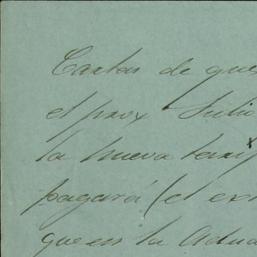 Cartas de que
el prox Julio
la nueva tari
pagará (el ex
que en la Adua